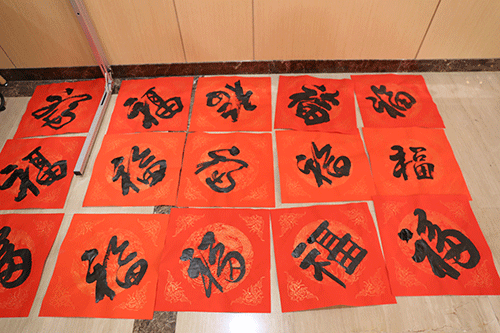 福 福 福
福 福 福 福
福 福 福 福 福